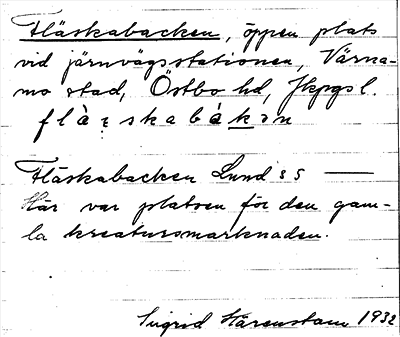 Fläskabacken, öppen plats
vid järnvägsstationen, Värna-
mo stad, Östbo hd, Jkpgs l.
flàskabàkən
Fläskabacken Lund s 5 —
Här var platsen för den gam-
la kreatursmarknaden.
Sigrid Härenstam 1932